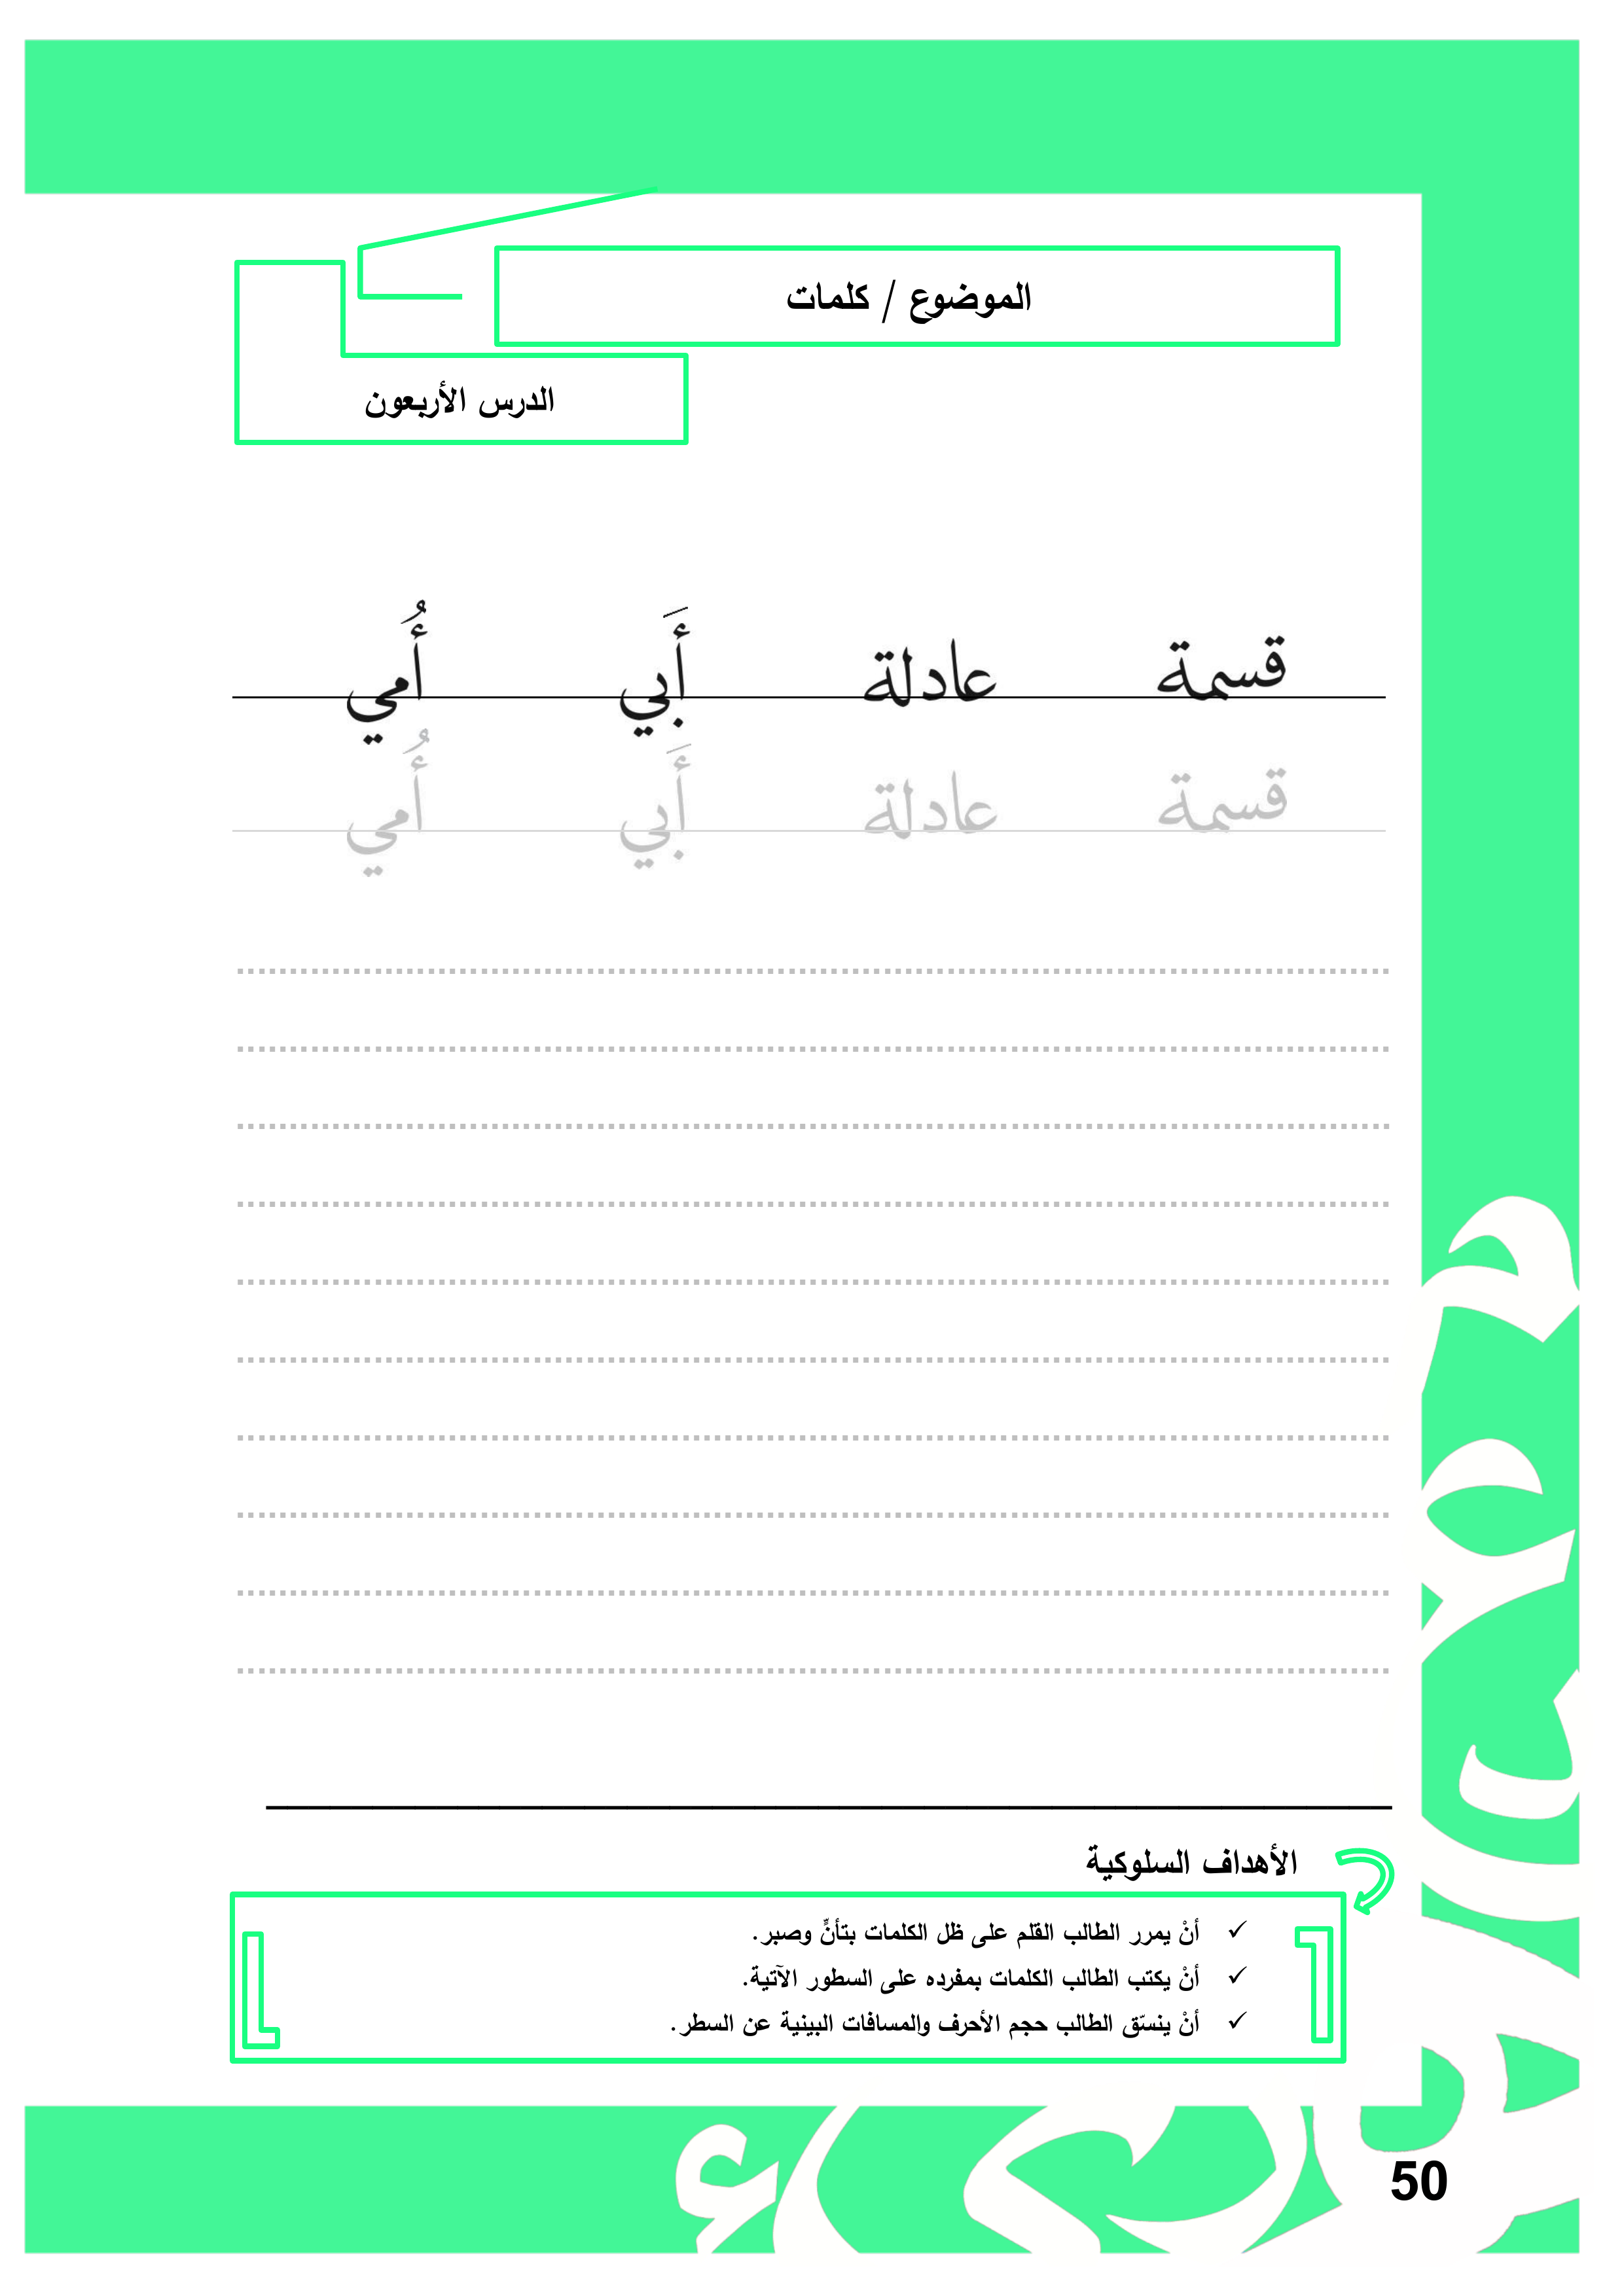 الموضوع / كلمات
الدرس الأربعون
قسمة عادلة أَبي أُمي
قسمة عادلة أَبي أُمي
الأهداف السلوكية
✓ أنْ يمرر الطالب القلم على ظل الكلمات بتأنٍّ وصبر.
✓ أنْ يكتب الطالب الكلمات بمفرده على السطور الآتية.
✓ أنْ ينسّق الطالب حجم الأحرف والمسافات البينية عن السطر.
50